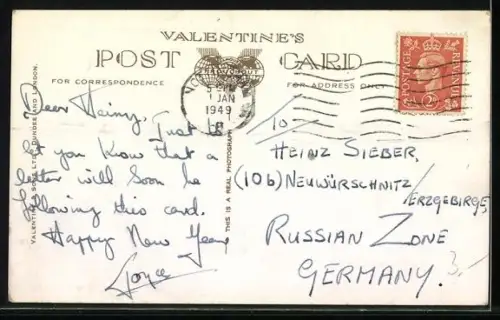 VALENTINE'S
POST CARD
FOR CORRESPONDENCE
FOR ADDRESS ONLY
1 JAN
1949
POSTAGE REVENUE
Dear Heinz, Just to
let you know that a
letter will soon be
following this card.
Happy New Year
Joyce
THIS IS A REAL PHOTOGRAPH
To
HEINZ SIEBER,
(10b) NEUWÜRSCHNITZ/
ERZGEBIRGE,
RUSSIAN ZONE
GERMANY.
3.-